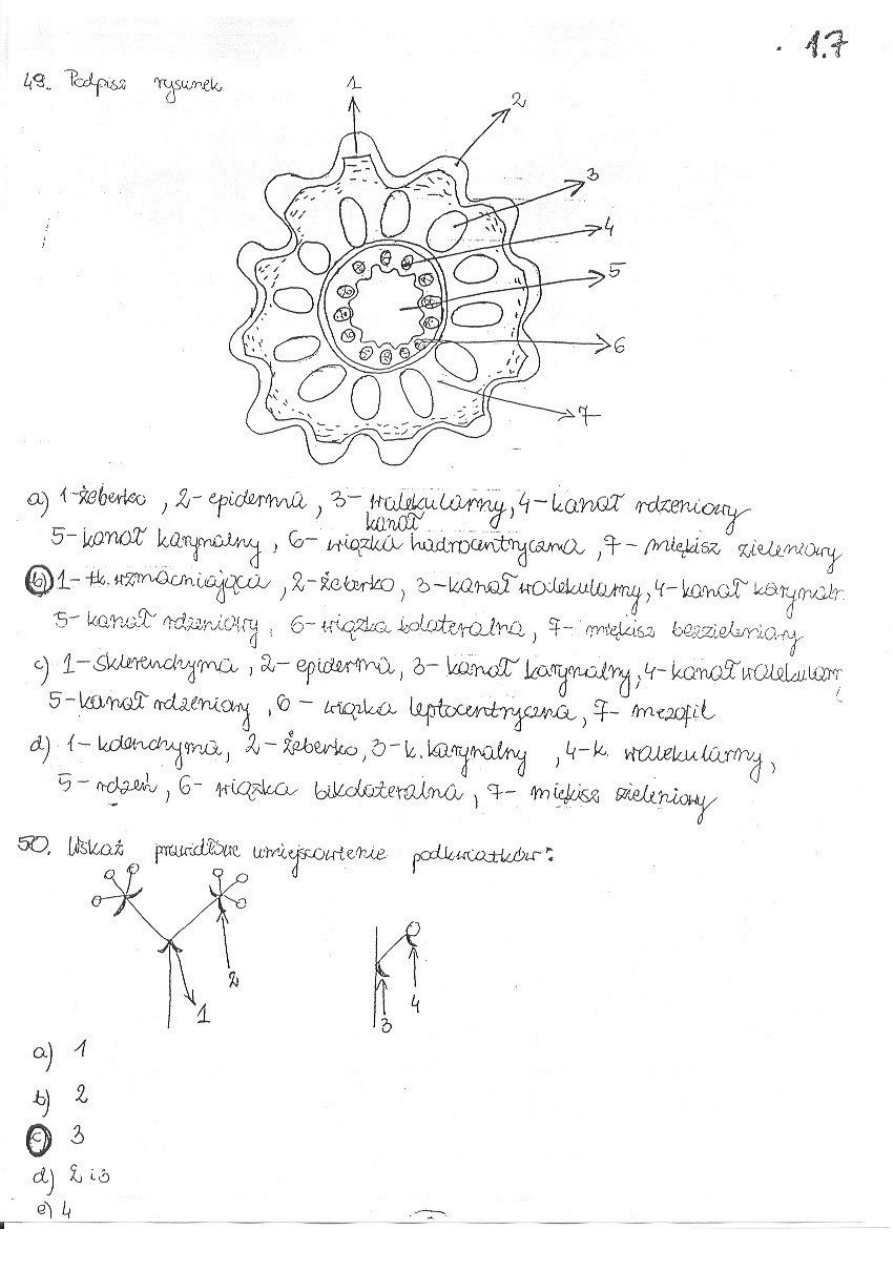 1.7
49. Podpisz rysunek
1
2
3
4
5
6
7
a) 1-żeberko, 2-epiderma, 3-kanał walekularny, 4-kanał rdzeniowy
5-kanał karynalny, 6-wiązka hadrocentryczna, 7-miękisz zieleniowy
b) 1-tk. wzmacniająca, 2-żeberko, 3-kanał walekularny, 4-kanał karynaln.
5-kanał rdzeniowy, 6-wiązka kolateralna, 7-miękisz bezzieleniowy
c) 1-Sklerenchyma, 2-epiderma, 3-kanał karynalny, 4-kanał walekularn
5-kanał rdzeniowy, 6-wiązka leptocentryczna, 7-mezofil
d) 1-kolenchyma, 2-żeberko, 3-k. karynalny, 4-k. walekularny,
5-rdzeń, 6-wiązka bikolateralna, 7-miękisz zieleniowy
50. Wskaż prawidłowe umiejscowienie podkwiatków:
1
2
3
4
a) 1
b) 2
c) 3
d) 2 i 3
e) 4